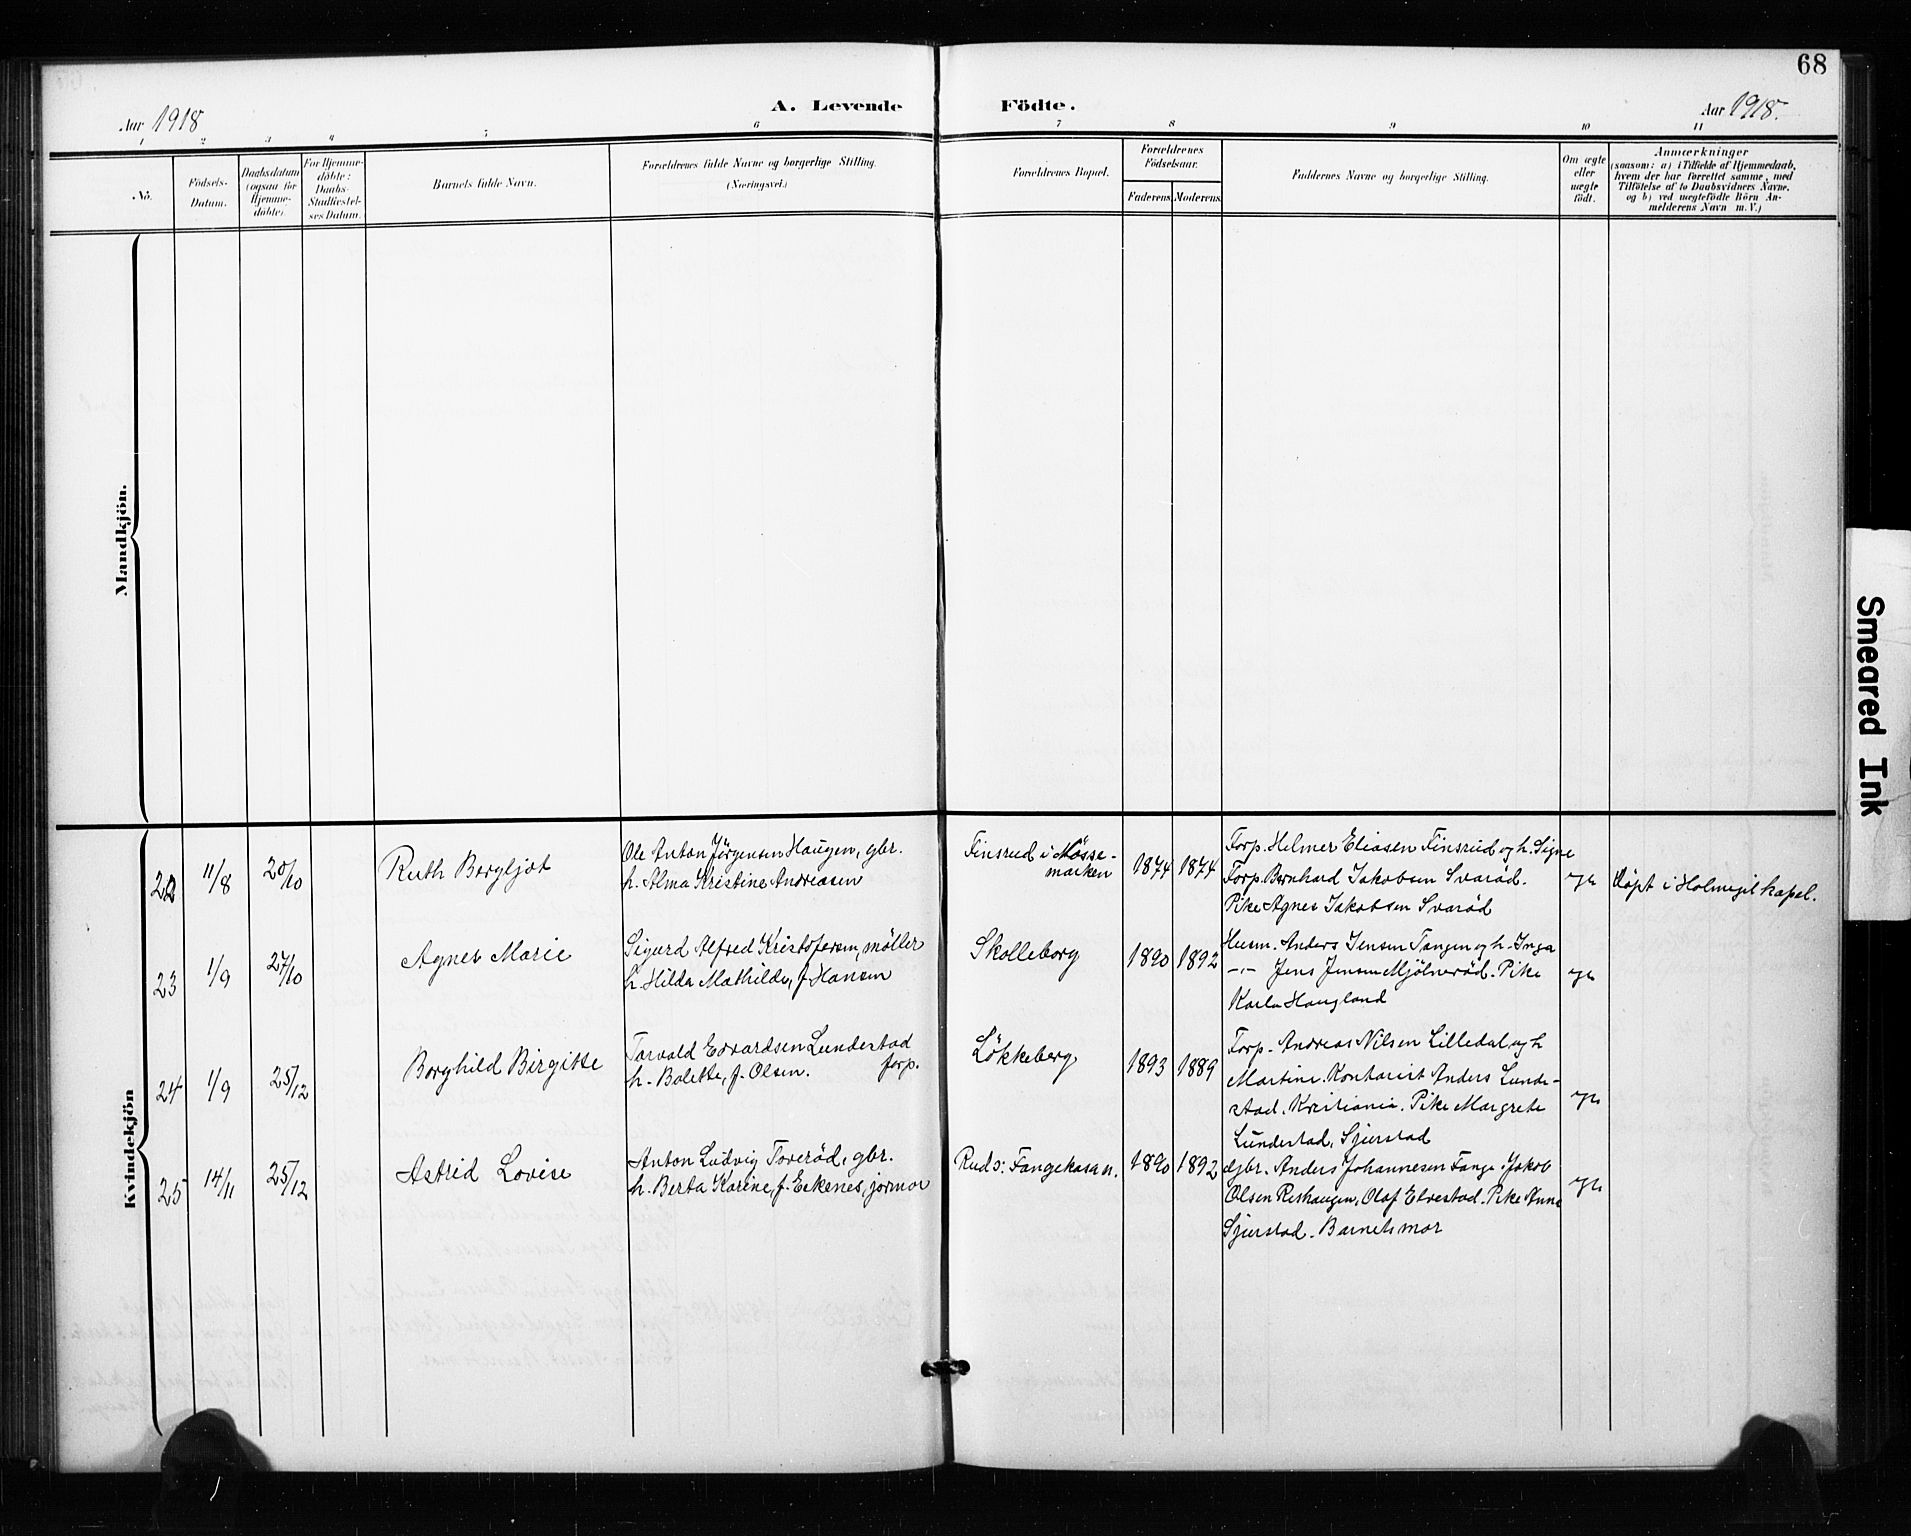 68
Aar 1918
A. Levende Födte.
Aar 1918.
1 2 3 4 5 6 7 8 9 10 11
No.
Födsels-
Datum.
Daabsdatum
(ogsaa for
Hjemme-
döbte).
For Hjemme-
döbte:
Daabs-
Stadfæstel-
ses Datum.
Barnets fulde Navn.
Forældrenes fulde Navne og borgerlige Stilling.
(Næringsvei.)
Forældrenes Bopæl.
Forældrenes
Födselsaar.
Faderens Moderens
Faddernes Navne og borgerlige Stilling.
Om ægte
eller
uægte
födt.
Anmærkninger
(saasom: a) i Tilfælde af Hjemmedaab,
hvem der har forrettet samme, med
Tilföielse af to Daabsvidners Navne,
og b) ved uægtefödte Börn An-
melderens Navn m. V.)
Mandkjön.
Kvindekjön
22 11/8 20/10
Ruth Bergljot
Ole Anton Jörgensen Haugen, gbr.
h. Alma Kristine Andreasen
Finsrud i Mosse-
marken
1874 1874
Forp. Helmer Eliasen Finsrud og h. Signe
Forp. Bernhard Jakobsen Svaröd.
Pike Agnes Jakobsen Svaröd
Døpt i Holmegil kapel.
23 1/9 27/10
Agnes Marie
Sigurd Alfred Kristofersen, møller
h. Hilda Mathilde, f. Hansen
Skolleborg
1890 1892
Husm. Anders Jensen Tangen og h. Inga
-"- Jens Jensen Mjölneröd. Pike
Karla Haugland
24 1/9 25/12
Borghild Birgitte
Torvald Edvardsen Lundestad
forp.
h. Bolette, f. Olsen.
Lökkeberg
1893 1889
Forp. Andreas Nilsen Lilledal og h
Martine. Kontorist Anders Lunde-
stad, Kristiania. Pike Margrete
Lundestad, Sjerstad
25 14/11 25/12
Astrid Lovise
Anton Ludvig Toveröd, gbr.
h. Berta Karine, f. Eekenes, jormor
Ruds: Fangekasan.
1890 1892
Gbr. Anders Johannesen Fange. Jakob
Olsen Reshaugen, Olaf Elvestad. Pike Anna
Sjerstad. Barnets mor
Smeared Ink